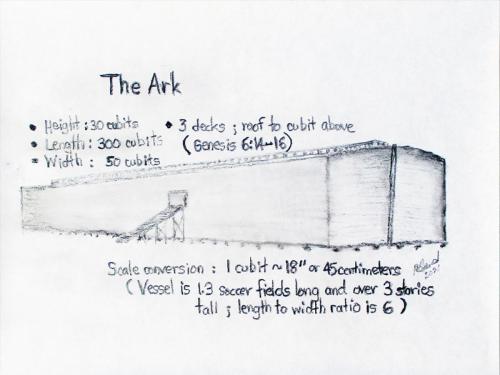 The Ark
• Height : 30 cubits
• Length : 300 cubits
• Width : 50 cubits
• 3 decks ; roof to cubit above
(Genesis 6:14-16)
Scale conversion : 1 cubit ~ 18" or 45 centimeters
(Vessel is 1.3 soccer fields long and over 3 stories
tall ; length to width ratio is 6)